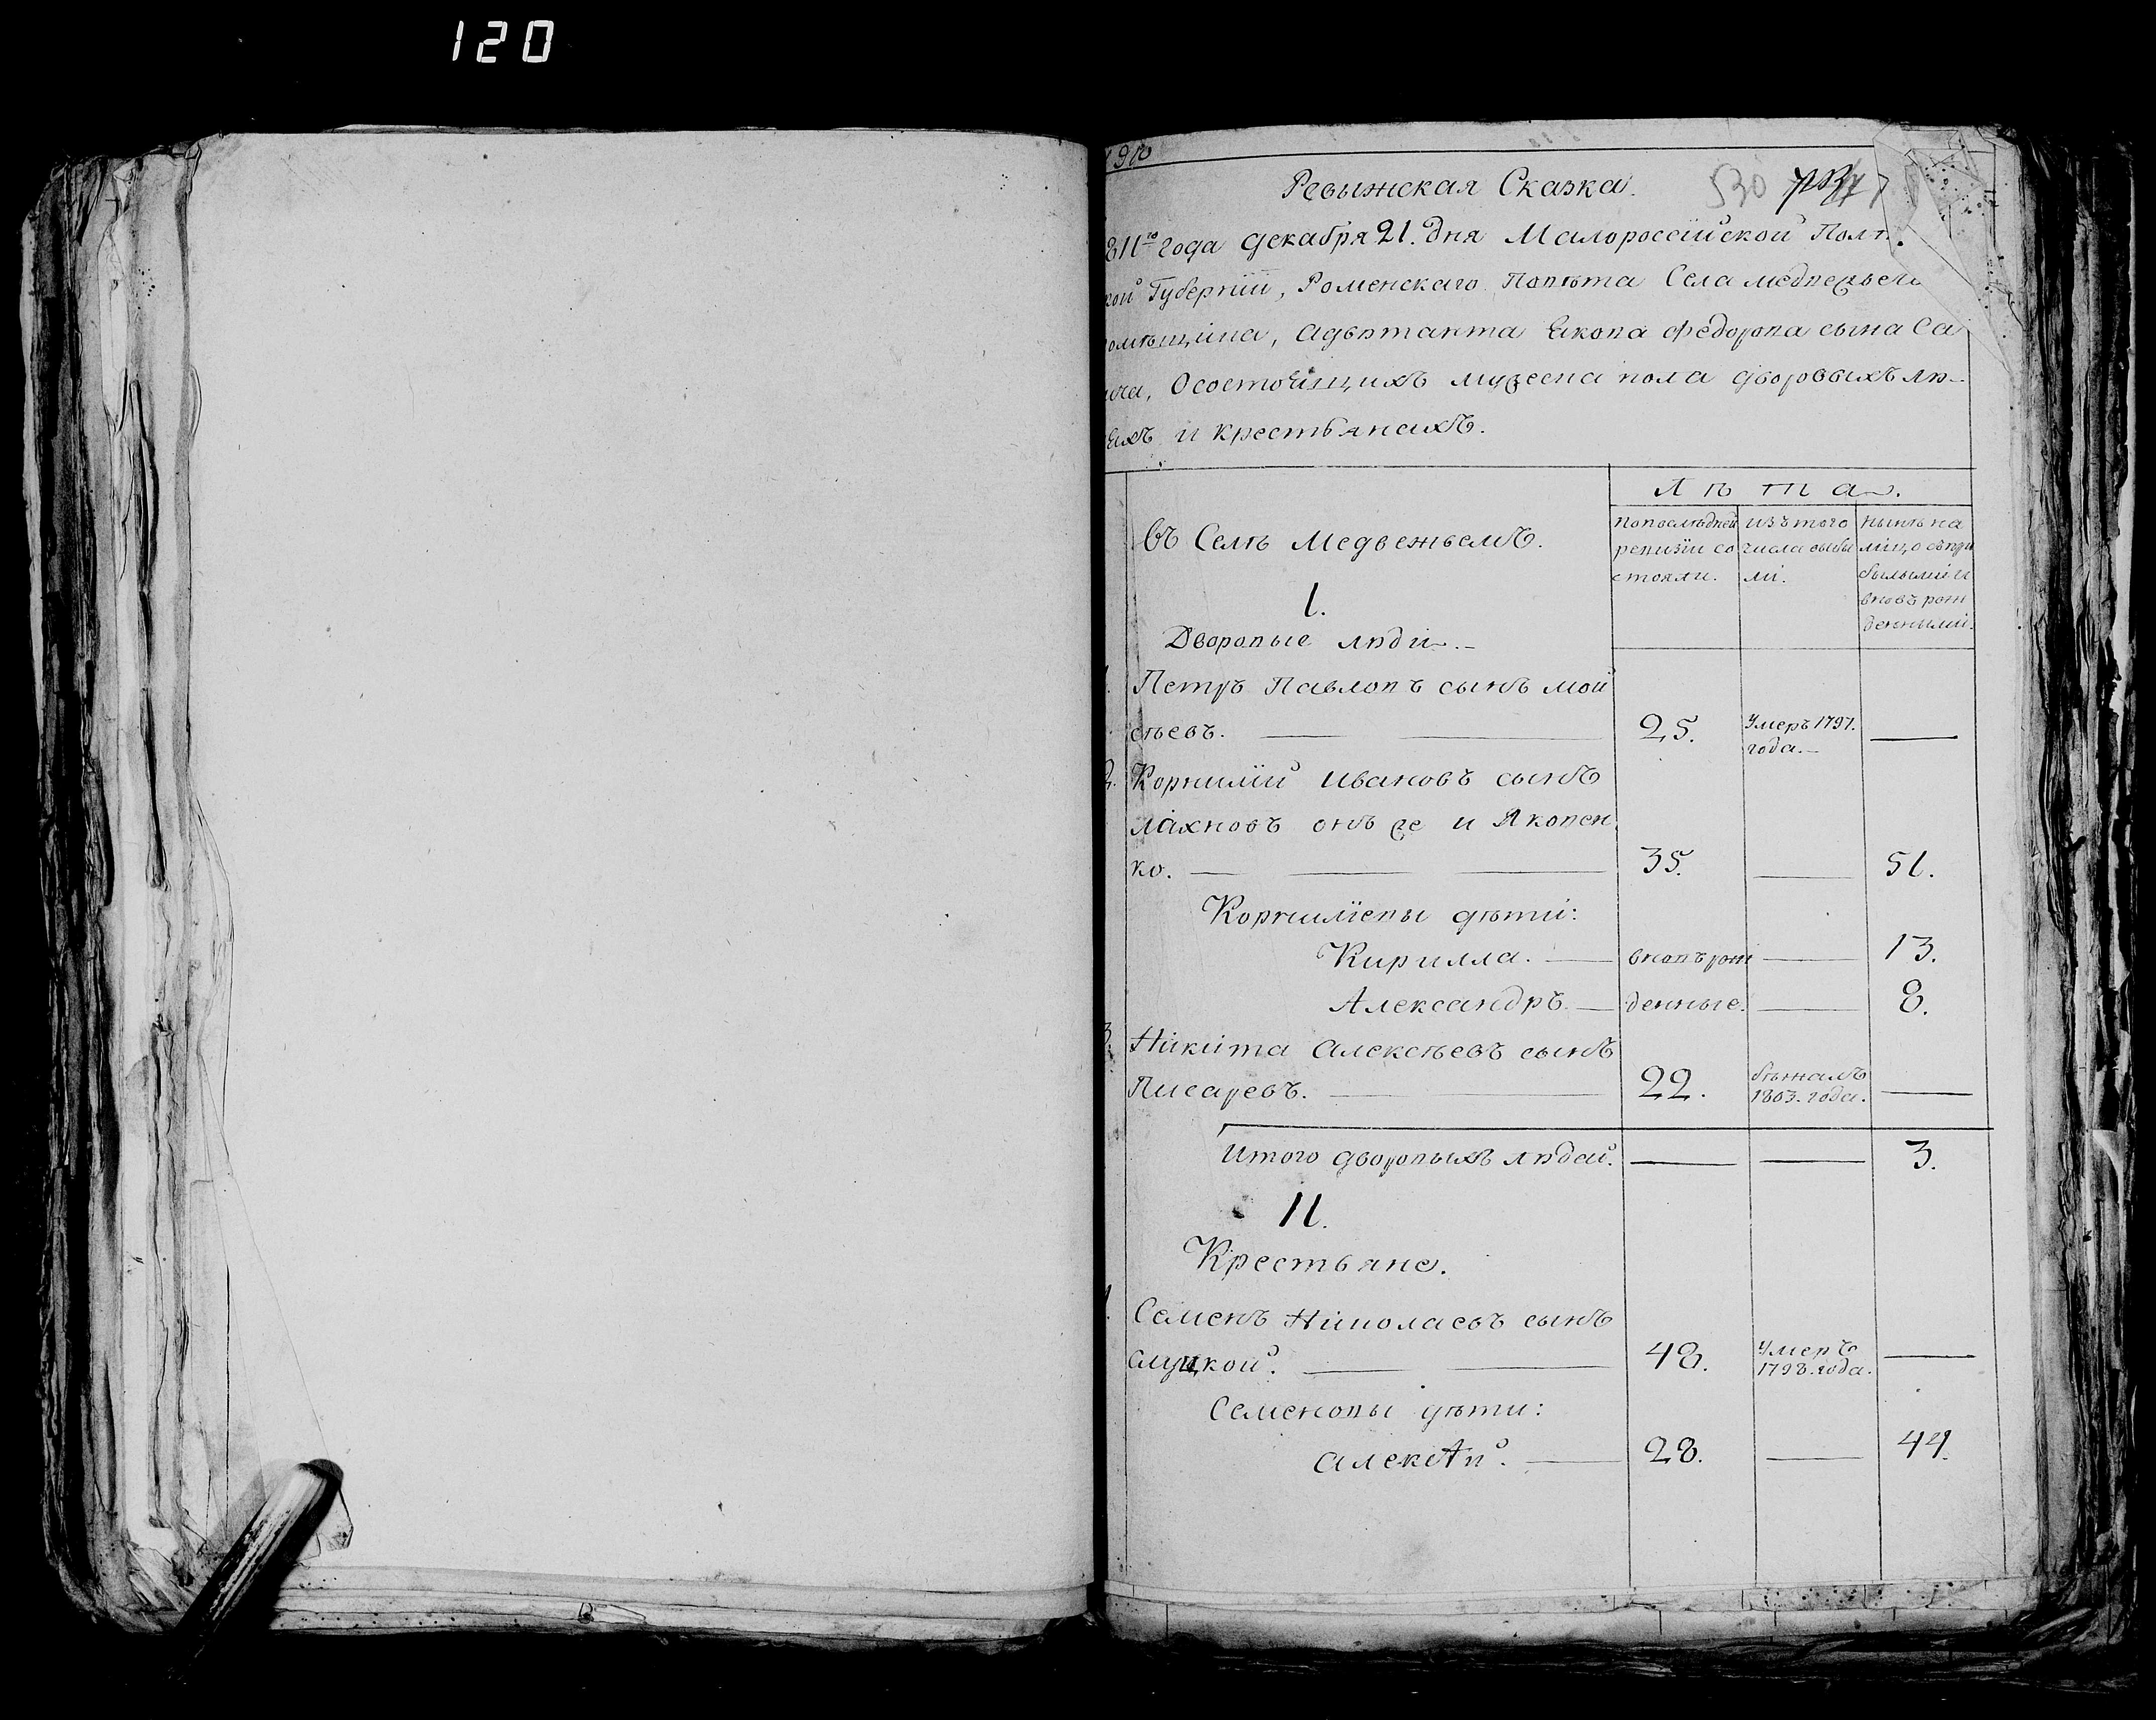 120
530
Ревыжская Сказка.
811го года декабря 21. дня Малороссійской Полт.
кой Губерніи, Роменскаго Повѣта Села медвежьего
омѣщика, адъютанта Якова Федорова сына Са
ича, О состоящихъ мужеска пола дворовыхъ лю-
дяхъ и крестьянахъ.
Лѣта.
въ Селѣ Медвежьемъ.
по послѣдней ревизіи состояли.
изъ того числа выбыли.
нынѣ на лицо съ прибылыми и вновь рожденными.
I.
Дворовые люди.
1. Петръ Павловъ сынъ мой
сѣевъ. 25. Умеръ 1797. года. —
2. Корнилій Ивановъ сынъ
лахновъ онъ же и Яковен
ко. 35. — 51.
Корниліевы дѣти:
Кирилла. — вновь рож — 13.
Александръ — денные. — 8.
3. Никита алексѣевъ сынъ
Писаревъ. — 22. бѣжалъ 1803. года. —
Итого дворовыхъ людей. — — 3.
II.
Крестьяне.
1. Семенъ Николаевъ сынъ
слуцкой. — 48. Умеръ 1798. года. —
Семеновы дѣти:
алексѣй. — 28. — 44.